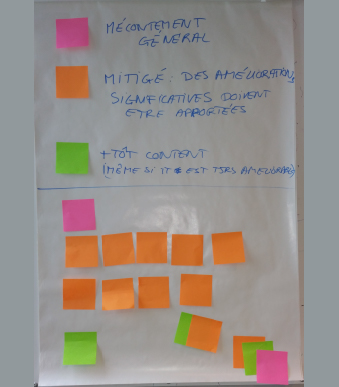 MÉCONTEMENT
GÉNÉRAL
MITIGÉ : DES AMÉLIORATIONS
SIGNIFICATIVES DOIVENT
ETRE APPORTÉES
+TÔT CONTENT
(MÊME SI TT EST TJRS AMELIORABLE)